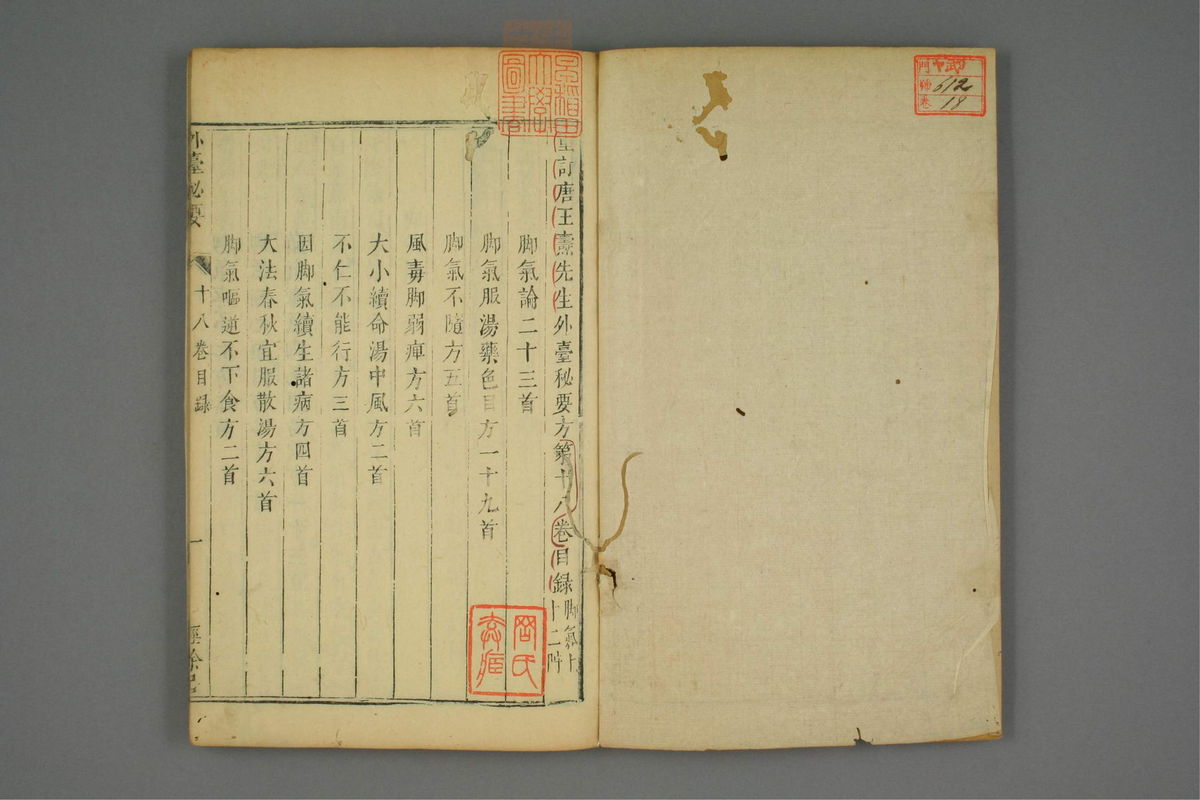 門
號 612
卷 18
早稲田
大學
圖書
重訂唐王燾先生外臺秘要方第十八卷目錄
脚氣上
十二門
脚氣論二十三首
脚氣服湯藥色目方一十九首
脚氣不隨方五首
風毒脚弱痺方六首
大小續命湯中風方二首
不仁不能行方三首
因脚氣續生諸病方四首
大法春秋宜服散湯方六首
脚氣嘔逆不下食方二首
外臺秘要
十八卷目錄
一
經餘居